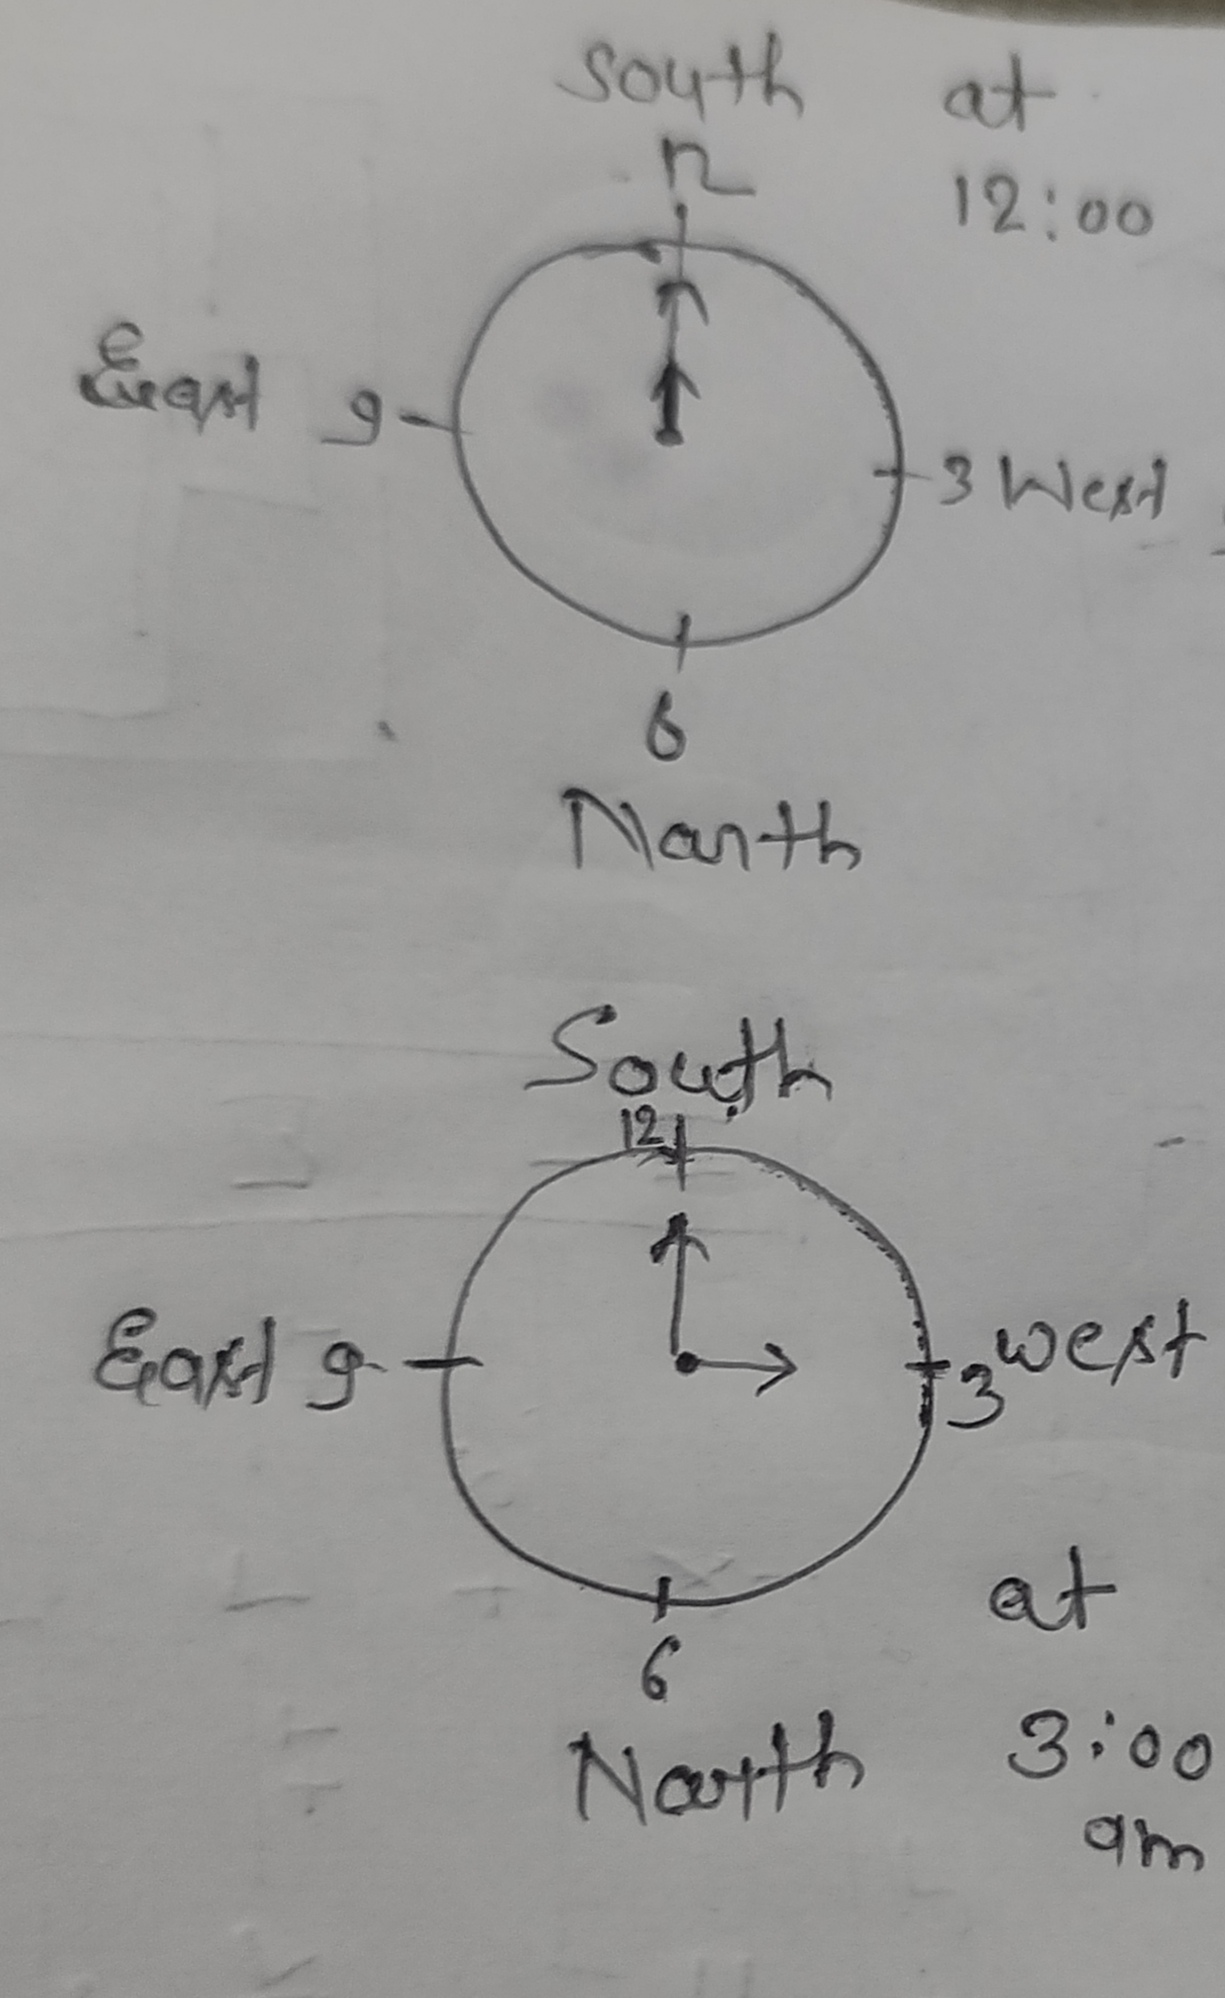 South at
12 12:00
East 9 3 West
6
North
South
12
East 9 3 west
6 at
North 3:00
am